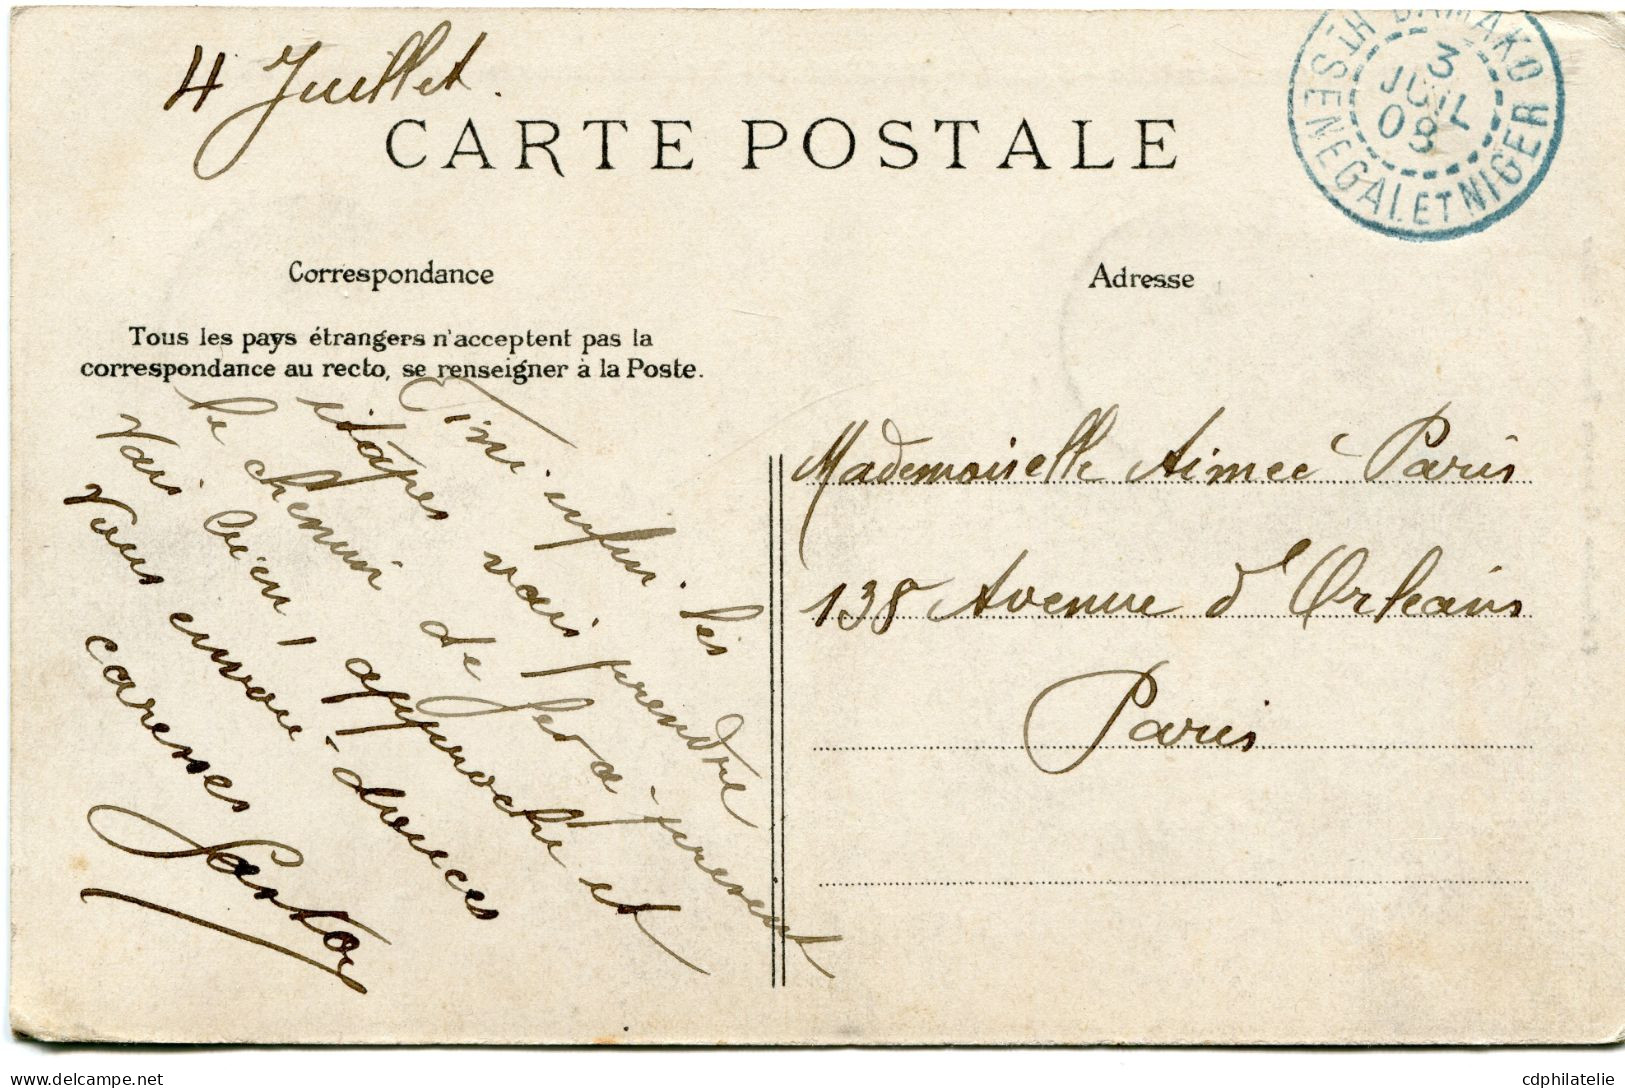 4 Juillet.
CARTE POSTALE
BAMAKO
Ht SSENEGAL ET NIGER
3
JUIL
08
Correspondance
Adresse
Tous les pays étrangers n'acceptent pas la
correspondance au recto, se renseigner à la Poste.
Fini enfin. les
étapes vais prendre
le chemin de fer à présent
Vais bien, approche et
vous envoie douces
caresses
Mademoiselle Aimée Paris
138 Avenue d'Orléans
Paris
cdphilatelie